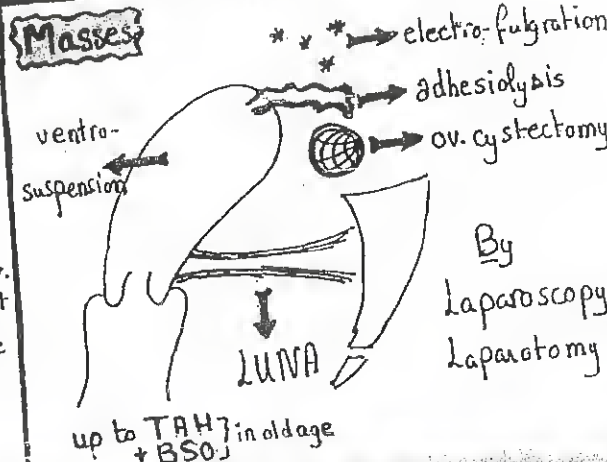 Masses
electro-fulgration
adhesiolysis
ov. cystectomy
ventro-
suspension
By
Laparoscopy
Laparotomy
LUNA
up to TAH } in old age
+ BSO